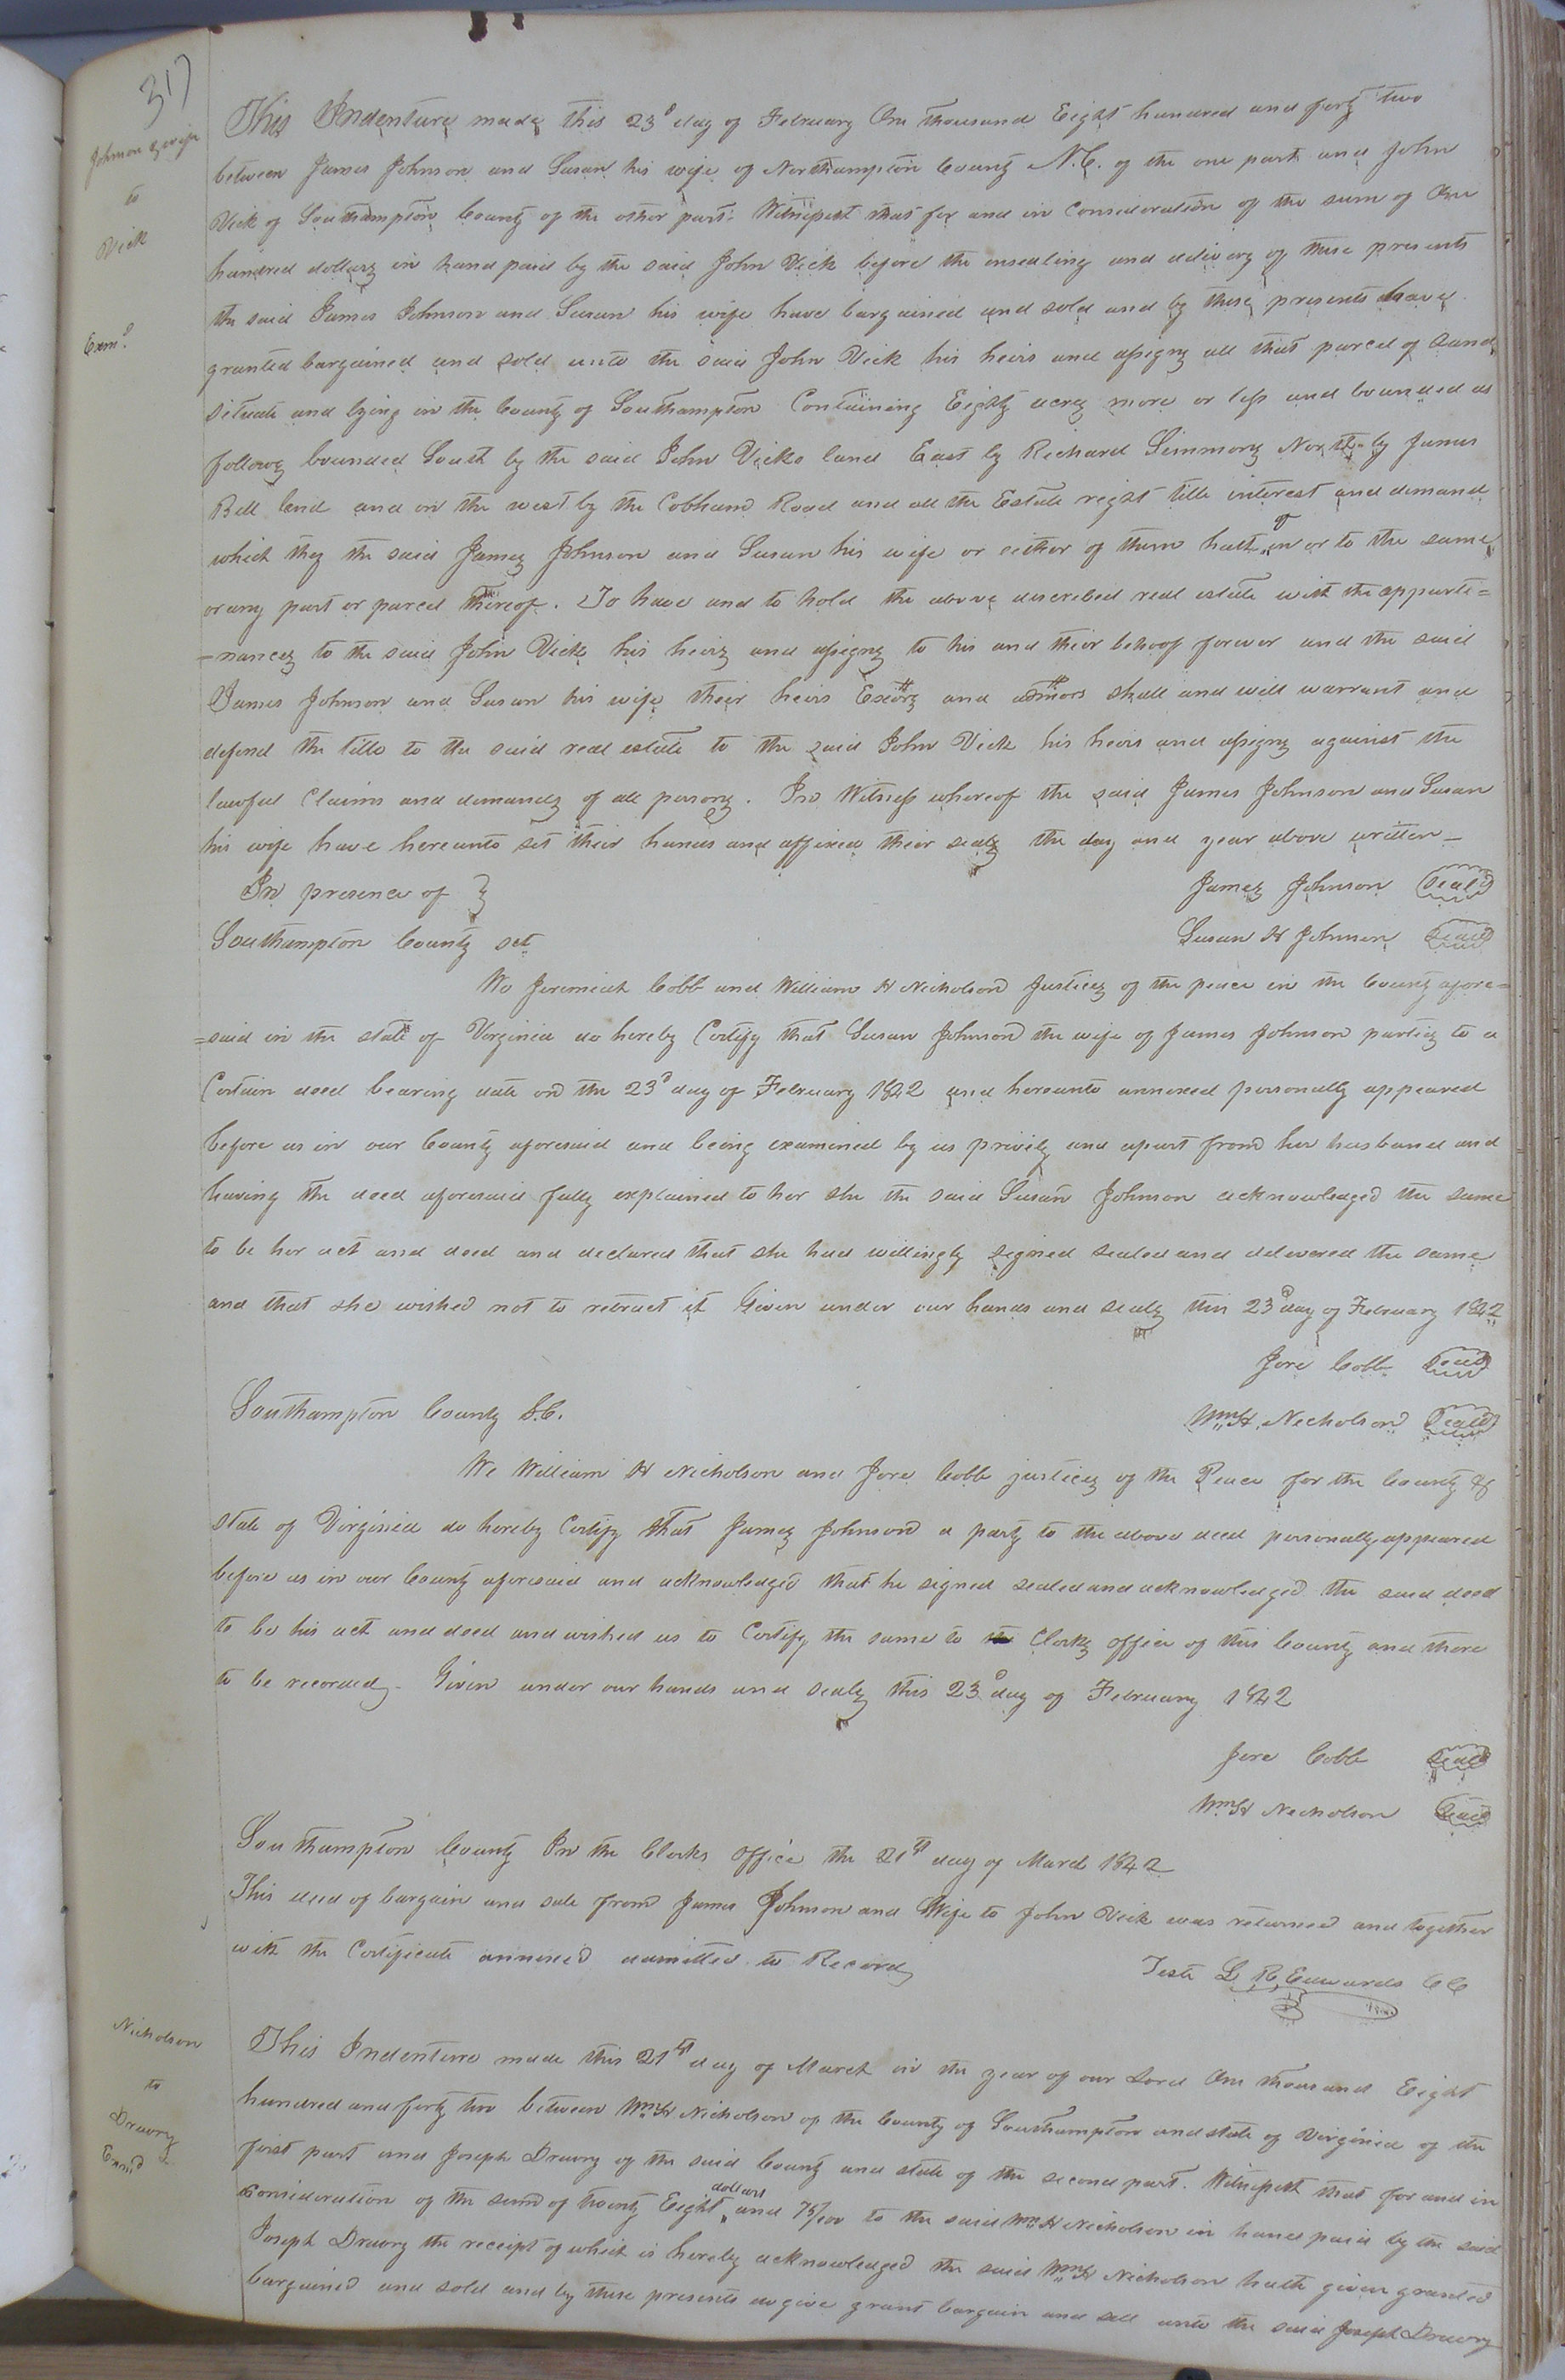 317
Johnson & wife
to
Vick
Exmd
This Indenture made this 23d day of February One thousand Eight hundred and forty two
between James Johnson and Susan his wife of Northampton County N.C. of the one part and John
Vick of Southampton County of the other part: Witnesseth that for and in Consideration of the sum of One
hundred dollars in hand paid by the said John Vick before the ensealing and delivery of these presents
the said James Johnson and Susan his wife have bargained and sold and by these presents have
granted bargained and sold unto the said John Vick his heirs and assigns all that parcel of Land
situate and lying in the County of Southampton Containing Eighty acres more or less and bounded as
follows bounded South by the said John Vicks land East by Richard Simmons North by James
Bell land and on the west by the Cobham Road and all the Estate right title interest and demand
which they the said James Johnson and Susan his wife or either of them hath of in or to the same
or any part or parcel thereof. To have and to hold the above described real estate with the appurte=
=nances to the said John Vick his heirs and assigns to his and their behoof forever and the said
James Johnson and Susan his wife their heirs Exors and admors shall and will warrant and
defend the title to the said real estate to the said John Vick his heirs and assigns against the
lawful Claims and demands of all persons. In Witness whereof the said James Johnson and Susan
his wife have hereunto set their hands and affixed their seals the day and year above written –
In presence of } James Johnson seal
Southampton County sct Susan H Johnson seal
We Jeremiah Cobb and William H Nicholson Justices of the peace in the County afore=
=said in the state of Virginia do hereby Certify that Susan Johnson the wife of James Johnson parties to a
Certain deed bearing date on the 23d day of February 1842 and hereunto annexed personally appeared
before us in our County aforesaid and being examined by us privily and apart from her husband and
having the deed aforesaid fully explained to her she the said Susan Johnson acknowledged the same
to be her act and deed and declared that she had willingly signed sealed and delivered the same
and that she wished not to retract it Given under our hands and seals this 23d day of February 1842
Jere Cobb seal
Southampton County S.C. Wm H. Nicholson seal
We William H Nicholson and Jere Cobb justices of the Peace for the County &
state of Virginia do hereby Certify that James Johnson a party to the above deed personally appeared
before us in our County aforesaid and acknowledged that he signed sealed and acknowledged the said deed
to be his act and deed and wished us to Certify the same to the Clerks office of this County and there
to be recorded. Given under our hands and seals this 23d day of February 1842
Jere Cobb seal
Wm H Nicholson seal
Southampton County In the Clerks office the 21st day of March 1842
This deed of bargain and sale from James Johnson and Wife to John Vick was returned and together
with the Certificate annexed admitted to Record
Teste L R Edwards CC
Nicholson
to
Drewry
Exmd
This Indenture made this 21st day of March in the year of our Lord One thousand Eight
hundred and forty two between Wm H Nicholson of the County of Southampton and state of Virginia of the
first part and Joseph Drewry of the said County and state of the second part. Witnesseth that for and in
consideration of the sum of twenty Eight dollars and 75/100 to the said Wm H Nicholson in hand paid by the said
Joseph Drewry the receipt of which is hereby acknowledged the said Wm H Nicholson hath given granted
bargained and sold and by these presents do give grant bargain and sell unto the said Joseph Drewry